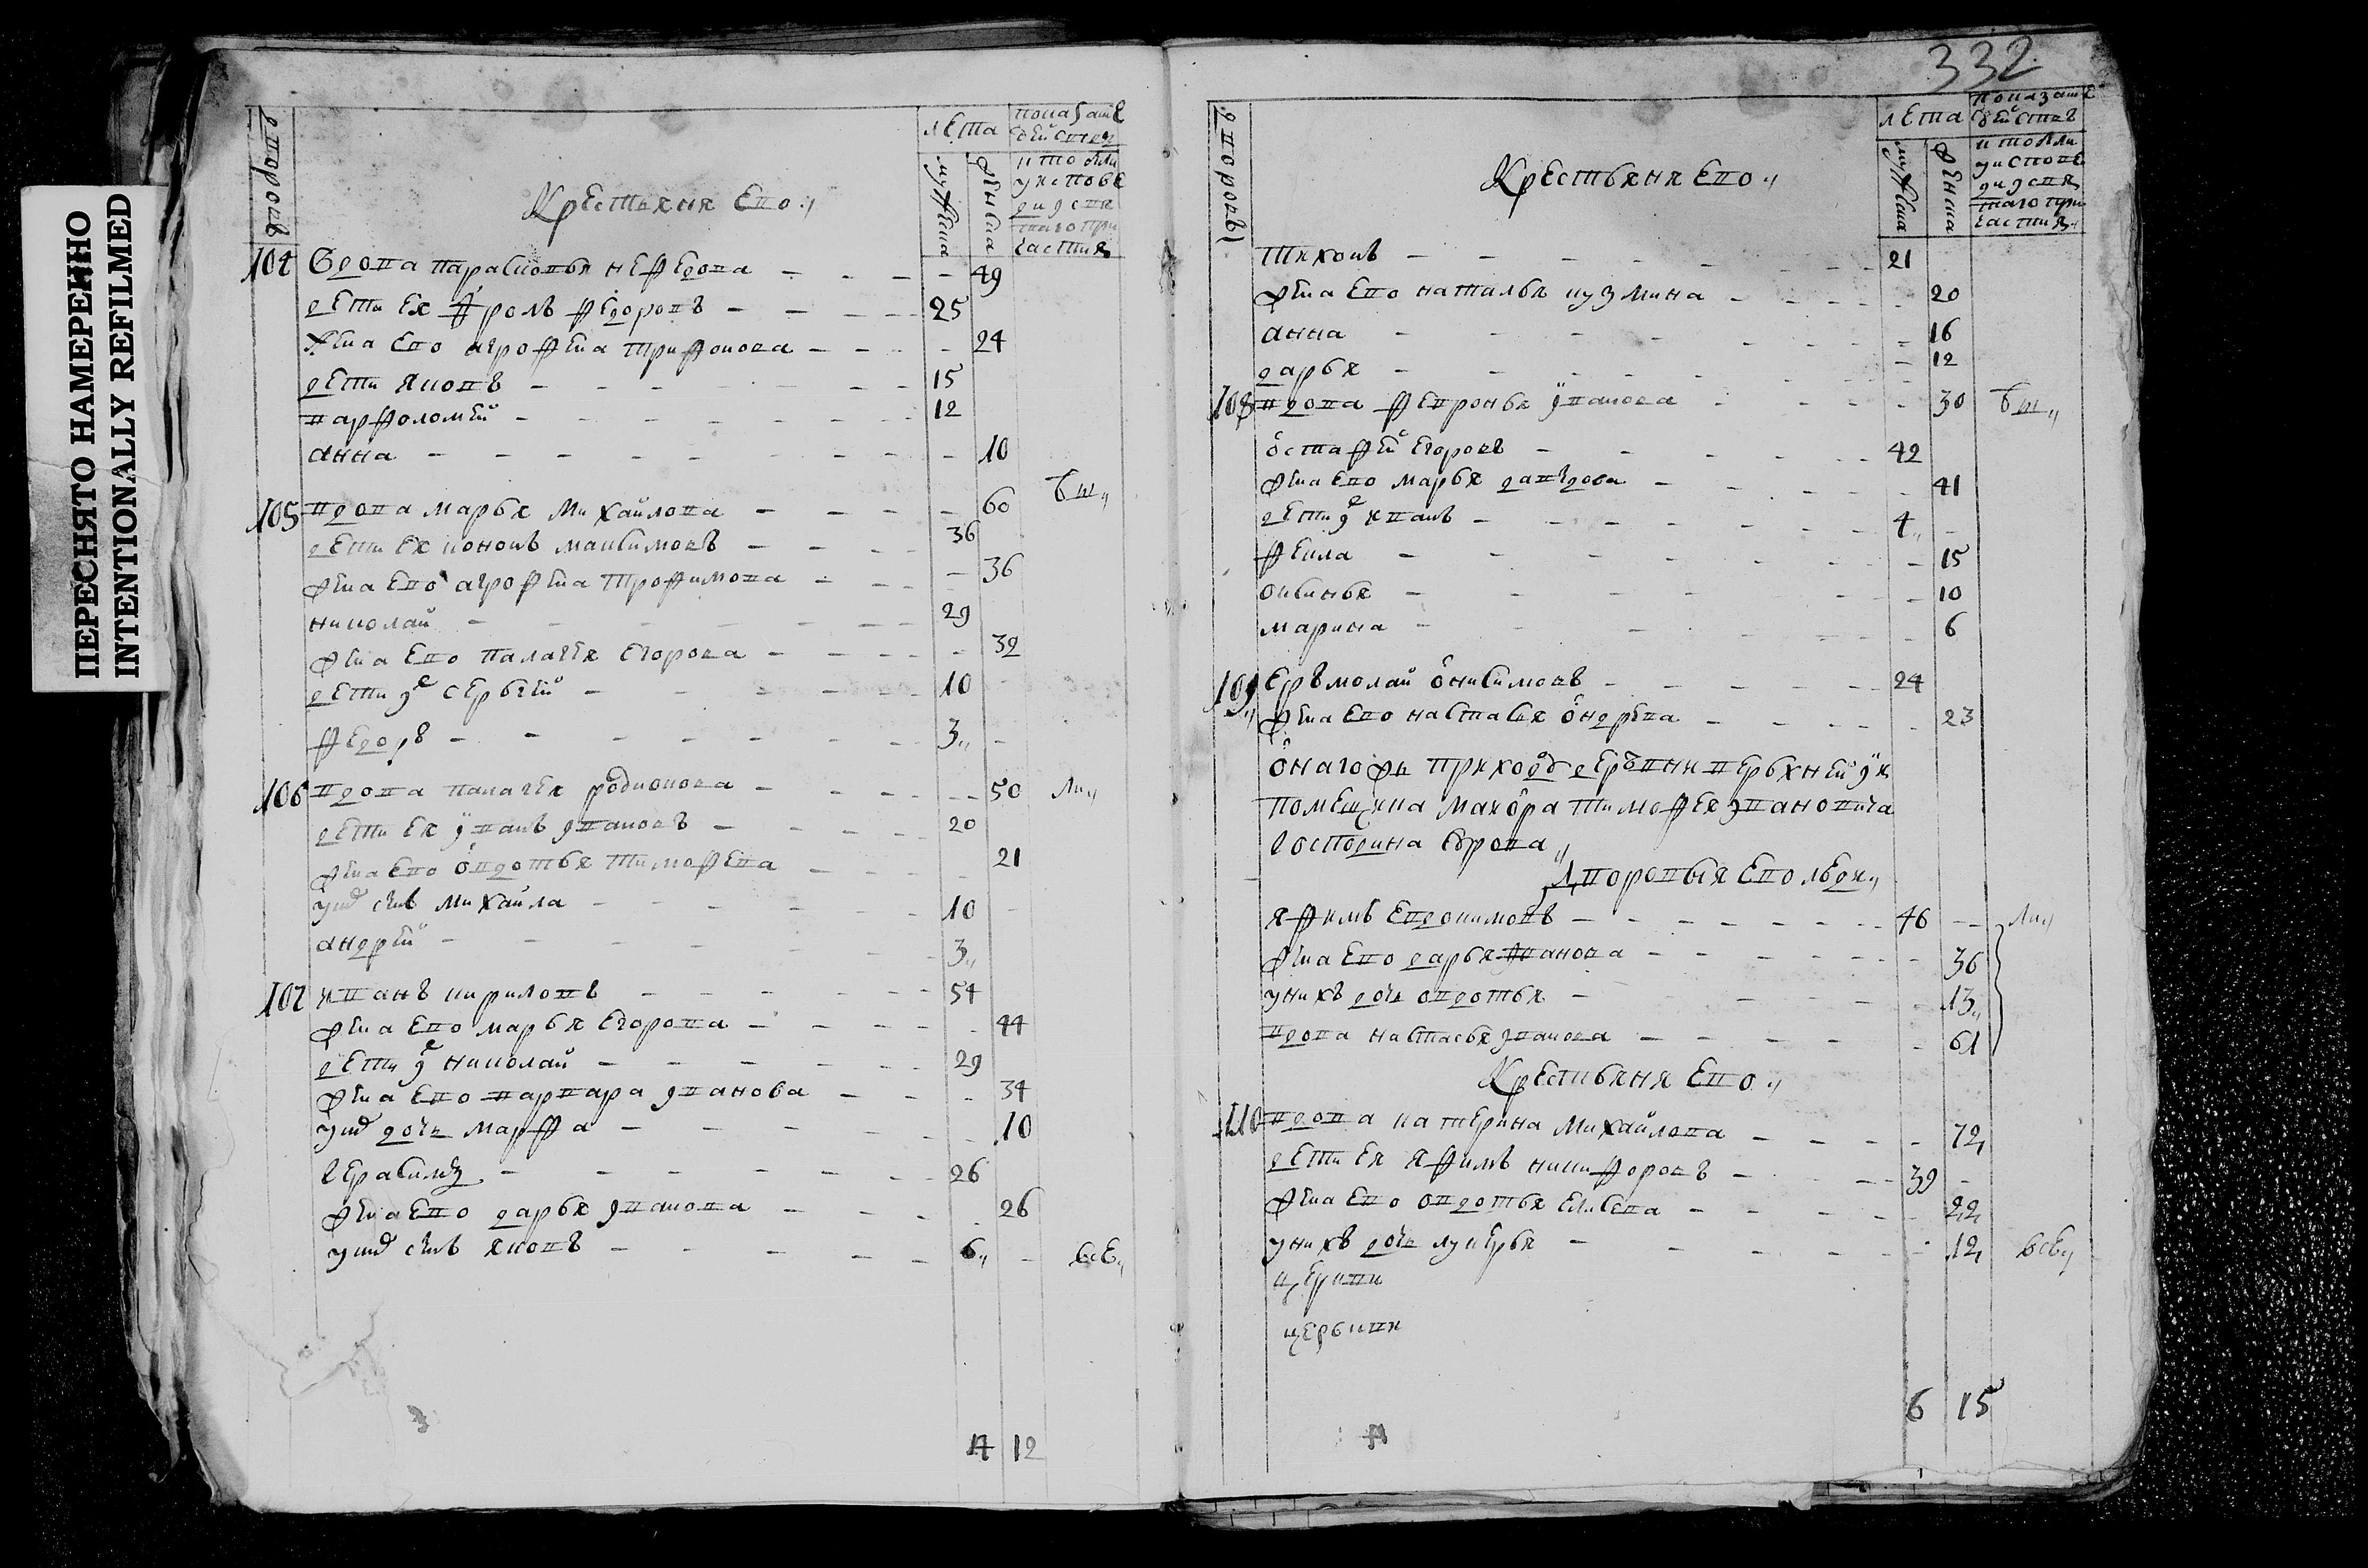 ПЕРЕСНЯТО НАМЕРЕННО
INTENTIONALLY REFILMED
дворовъ
Крестьяня Ево
лета
мужеска
женска
показате
действ
кто были
у исповѣ
ди и свя
таго при
частия
104 вдова парасковья неѳедова 49
дети ея ѳролъ ѳедоровъ 25
жена ево агрофена трифонова 24
дети яковъ 15
варфоломей 12
анна 10
105 вдова марья михайлова 60 быи
дети ея кононъ максимовъ 36
жена ево агрофена трофимова 36
николай 29
жена ево палагея егорова 32
дети ихъ сергей 10
ѳедоръ 3
106 вдова палагея родионова 50
дети ея иванъ ивановъ 20
жена ево овдотья тимофева 21
у них сынъ михайла 10
андрей 3
107 иванъ кириловъ 54
жена ево марья егорова 44
дети ихъ николай 29
жена ево варвара иванова 34
у них дочь марфа 10
герасимъ 26
жена ево дарья иванова 26
у них сынъ яковъ 6 все
14 12
332
дворовъ
Крестьяня Ево
лета
мужеска
женска
показате
действ
кто были
у испове
ди и свя
таго при
частия
тихонъ 21
жена ево наталья кузмина 20
анна 16
дарья 12
108 вдова февронья иванова 30 быи
остафей егоровъ 42
жена ево марья давыдова 41
дети их иванъ 4
фекла 15
оксинья 10
марина 6
109 ермолай онисимовъ 24
жена ево настасья ондрева 23
онагожъ приходу деревни верхней
помещика маиора тимофея ивановича
господина
дворовыя ево люди
яфимъ евдокимовъ 46
жена ево дарья иванова 36
у нихъ дочь овдотья 13
вдова настасья иванова 61
Крестьяня Ево
110 вдова катерина михайлова 72
дети ея яфимъ никифоровъ 39
жена ево овдотья елисева 22
у нихъ дочь лукерья 12 все
церкви
церкви
6 15